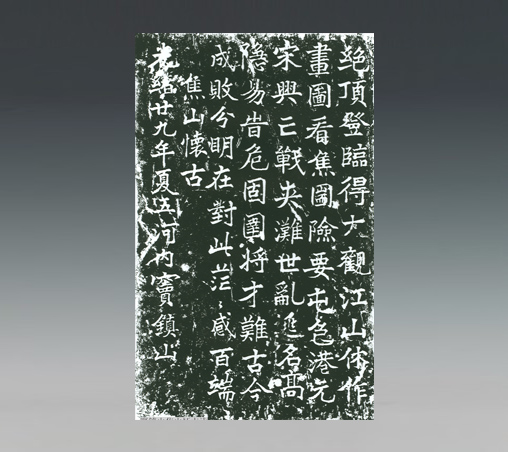 絶頂登臨得大觀江山休作
畫圖看焦圌險要屯邑港元
宋興亡戰夾灘世亂逃名高
隱易昔危固圍將才難古今
成敗分明在對此茫〻感百端
焦山懷古
光緒廿九年夏五河内竇鎮山